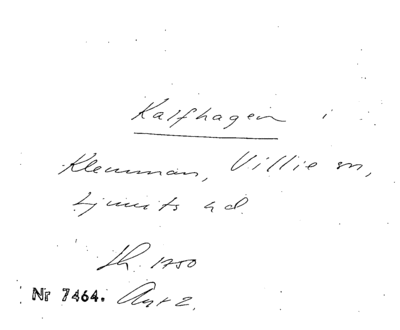 Kalfhagen i
Klemman, Villie sn,
Ljunits hd
Lh. 1750
Nr 7464. Avr 2.